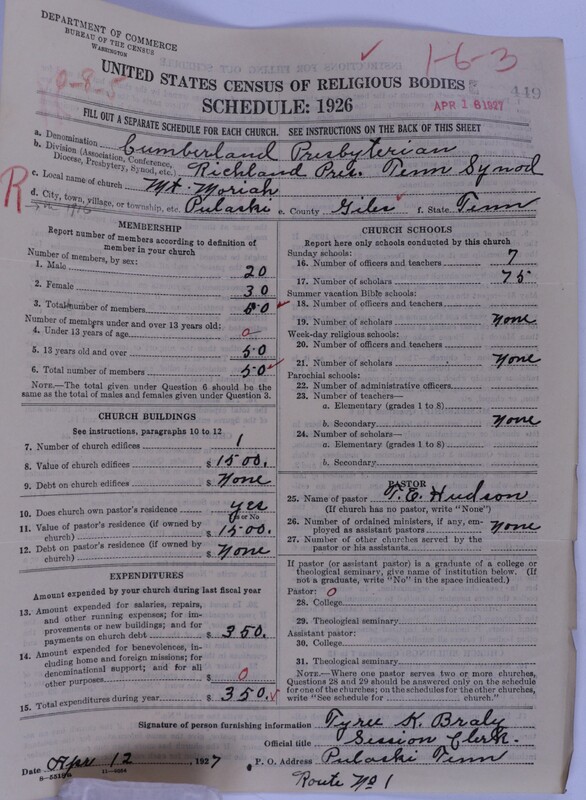 DEPARTMENT OF COMMERCE
BUREAU OF THE CENSUS
WASHINGTON
1-6-3
0-8-5
UNITED STATES CENSUS OF RELIGIOUS BODIES
449
SCHEDULE: 1926
APR 18 1927
FILL OUT A SEPARATE SCHEDULE FOR EACH CHURCH. SEE INSTRUCTIONS ON THE BACK OF THIS SHEET
R
a. Denomination Cumberland Presbyterian
b. Division (Association, Conference, Diocese, Presbytery, Synod, etc.) Richland Pres. Tenn Synod
c. Local name of church Mt. Moriah
d. City, town, village, or township, etc. Pulaski e. County Giles f. State Tenn
MEMBERSHIP
Report number of members according to definition of
member in your church
Number of members, by sex:
1. Male 20
2. Female 30
3. Total number of members 50
Number of members under and over 13 years old:
4. Under 13 years of age 0
5. 13 years old and over 50
6. Total number of members 50
NOTE.—The total given under Question 6 should be
same as the total of males and females given under Question 3.
CHURCH BUILDINGS
See instructions, paragraphs 10 to 12
7. Number of church edifices 1
8. Value of church edifices $ 1500.
9. Debt on church edifices $ None
10. Does church own pastor's residence yes
Yes or No
11. Value of pastor's residence (if owned by
church) $ 1500.
12. Debt on pastor's residence (if owned by
church) $ None
EXPENDITURES
Amount expended by your church during last fiscal year
13. Amount expended for salaries, repairs,
and other running expenses; for im-
provements or new building; and for
payments on church debt $ 350.
14. Amount expended for benevolences, in-
cluding home and foreign missions; for
denominational support; and for all
other purposes $ 0
15. Total expenditures during year $ 350
CHURCH SCHOOLS
Report here only schools conducted by this church
Sunday schools:
16. Number of officers and teachers 7
17. Number of scholars 75
Summer vacation Bible schools:
18. Number of officers and teachers
19. Number of scholars None
Week-day religious schools:
20. Number of officers and teachers
21. Number of scholars None
Parochial schools:
22. Number of administrative officers
23. Number of teachers—
a. Elementary (grades 1 to 8)
b. Secondary None
24. Number of scholars—
a. Elementary (grades 1 to 8)
b. Secondary
PASTOR
25. Name of pastor T. E. Hudson
(If church has no pastor, write "None")
26. Number of ordained ministers, if any, em-
ployed as assistant pastors None
27. Number of other churches served by the
pastor or his assistants
If pastor (or assistant pastor) is a graduate of a college or
theological seminary, give name of institution below. (If
not a graduate, write "No" in the space indicated.)
Pastor: 0
28. College
29. Theological seminary
Assistant pastor:
30. College
31. Theological seminary
NOTE.—Where one pastor serves two or more churches,
Questions 26 and 29 should be answered only on the schedule
for one of the churches; on the schedules for the other churches,
write "See schedule for church."
Signature of person furnishing information Tyree K. Braly
Official title Session Clerk.
Date Apr 12, 1927 P. O. Address Pulaski Tenn
Route No 1